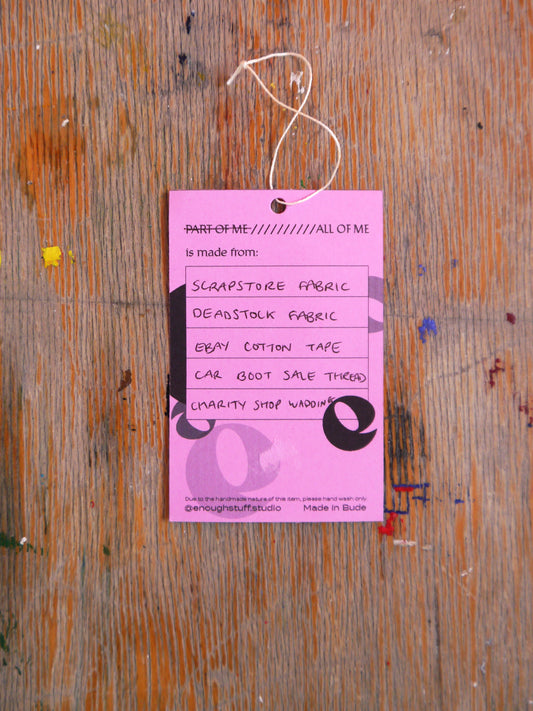 PART OF ME//////////ALL OF ME
is made from:
SCRAPSTORE FABRIC
DEADSTOCK FABRIC
EBAY COTTON TAPE
CAR BOOT SALE THREAD
CHARITY SHOP WADDING
Due to the handmade nature of this item, please hand wash only
@enoughstuff.studio Made in Bude